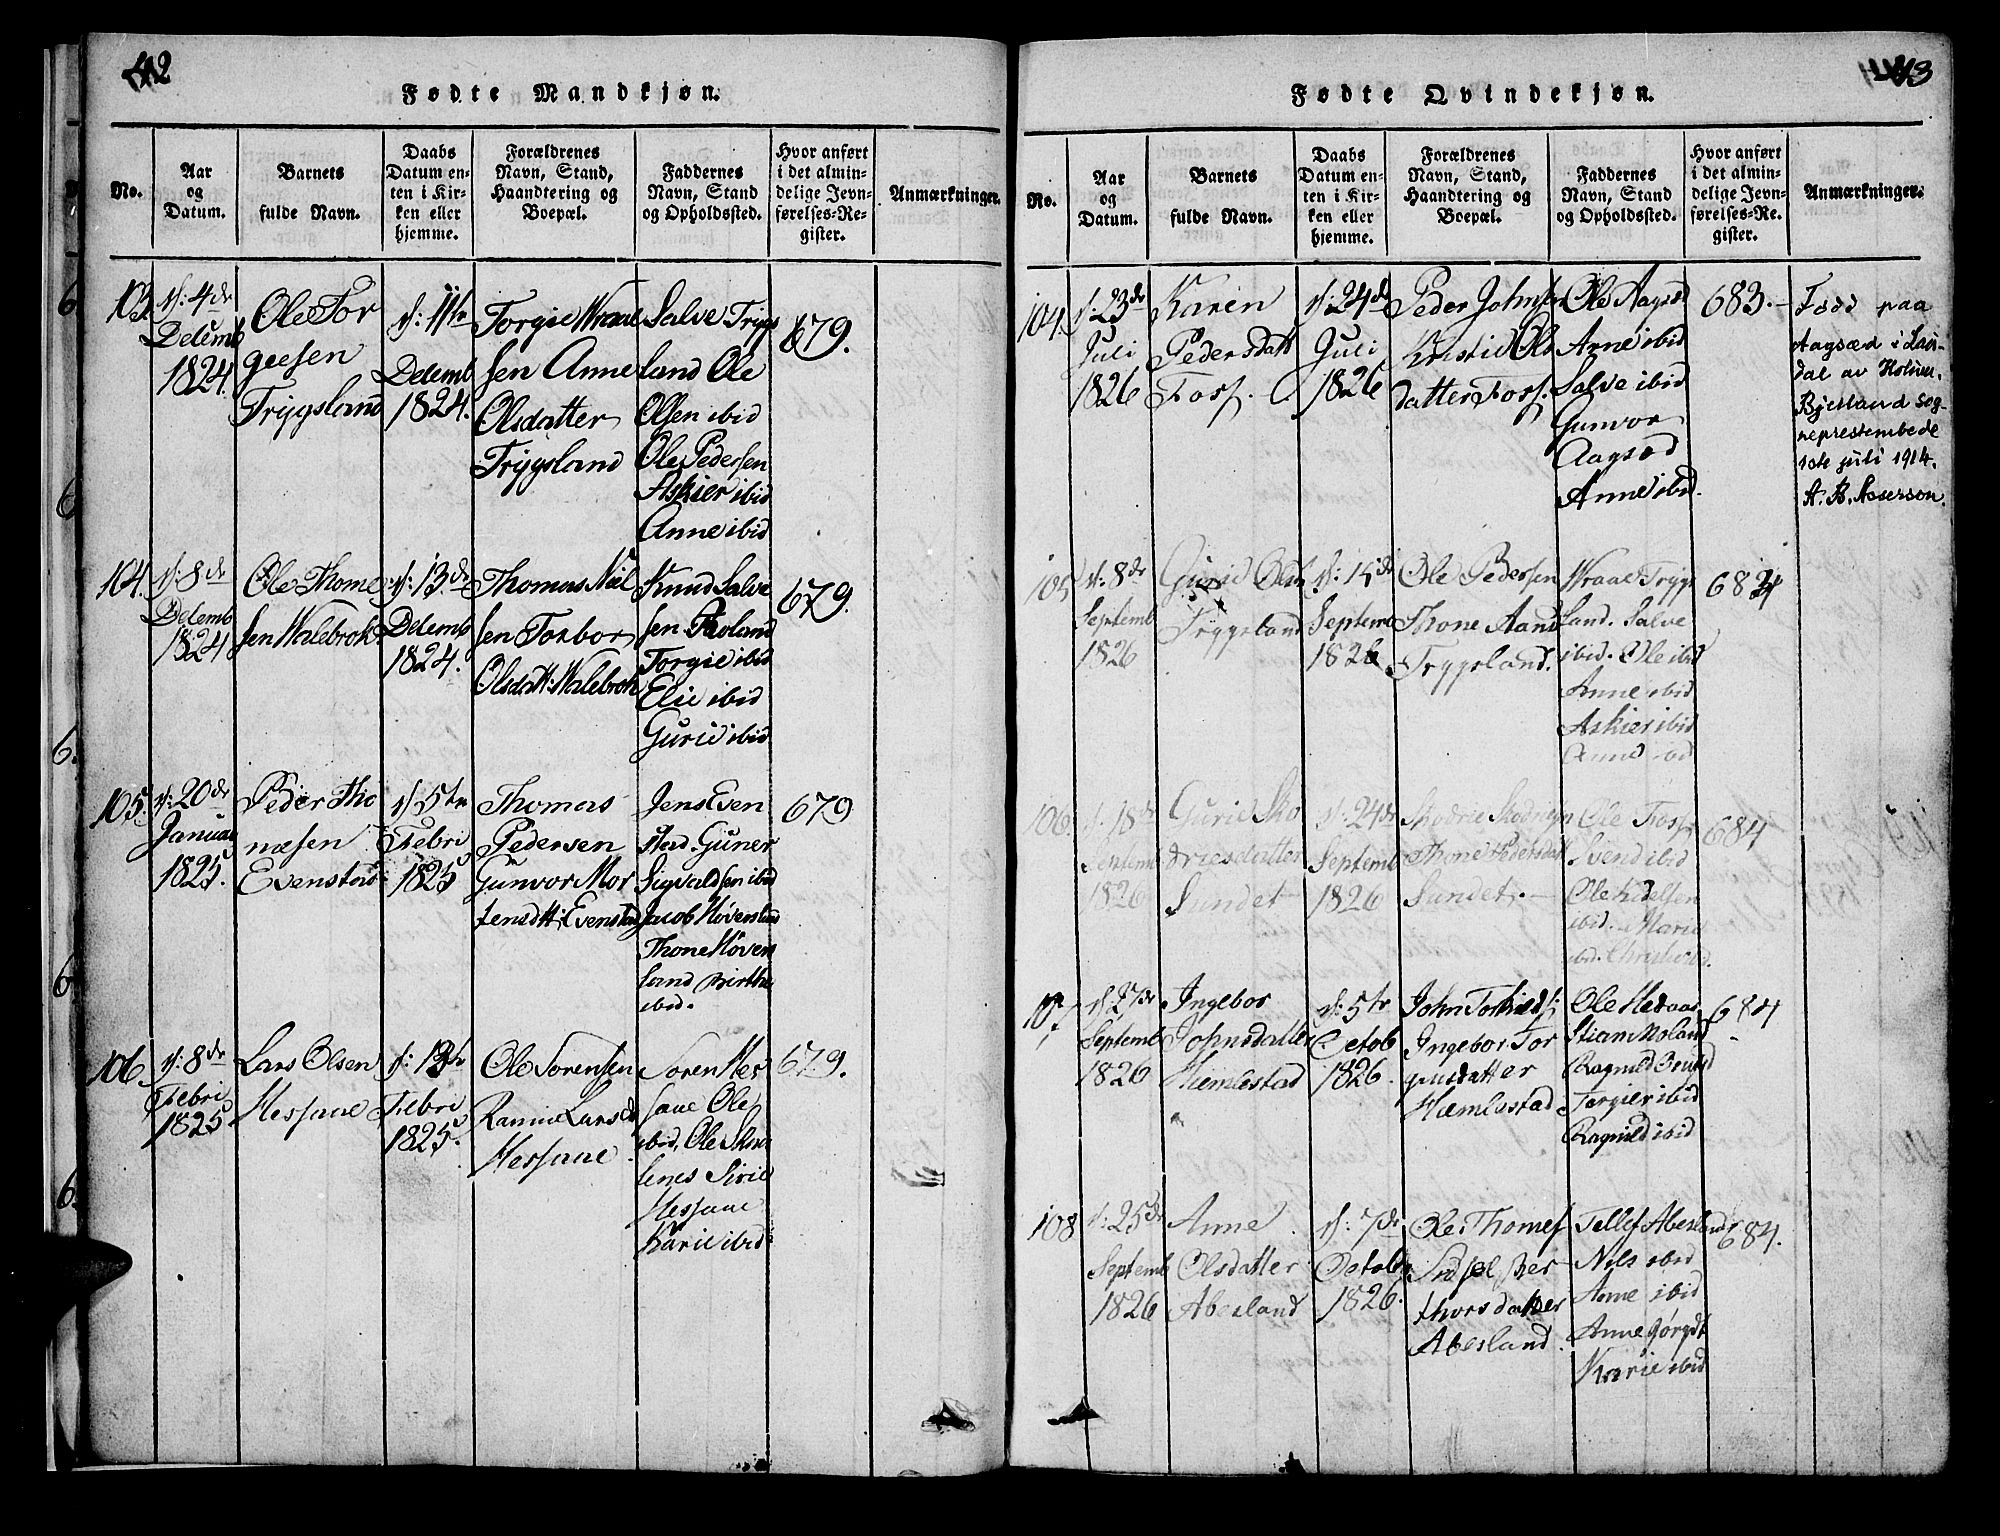 42
Fødte Mandkjøn.
No.
Aar
og
Datum.
Barnets
fulde Navn.
Daabs
Datum en-
ten i Kir-
ken eller
hjemme.
Forældrenes
Navn, Stand,
Haandtering og
Boepæl.
Faddernes
Navn, Stand
og Opholdssted.
Hvor anført
i det almin-
delige Jevn-
førelses-Re-
gister.
Anmærkninger.
103.
d: 4de
Decemb
1824.
Ole Tor
geesen
Trygsland
d: 11te
Decemb
1824.
Torgie Wraae
sen Anne
Olsdatter
Trygsland
Salve Trygs
land Ole
Olsen ibid
Ole Pedersen
Askier ibid
Anne ibid
679.
104.
d: 8de
Decemb
1824
Ole Thome
sen Walebrok
d: 13de
Decemb
1824.
Thomas Niel
sen Torbor
Olsdatt: Walebrok
Knud Salve
sen
Torgie ibid
Elie ibid
Gurie ibid
679.
105.
d: 20de
Januar
1825.
Peder Tho
mesen
Evenstad
d 5te
Febri
1825
Thomas
Pedersen
Gunvor Mor
tensdtt: Evenstad
Jens Even
stad. Guner
Sigvaldsen ibid
Jacob Høversland
Thone Høvers
land Birthe
ibid.
679
106.
d: 8de
Febri
1825
Lars Olsen
Messaue
d:
Febri
1825.
Ole Sorensen
Rannie Larsd
Messaue
Soren Mes
saue Ole
ibid, Ole
Sirie
Messaue
Karie ibid
679.
43
Fødte Qvindekjøn.
No.
Aar
og
Datum.
Barnets
fulde Navn.
Daabs
Datum en-
ten i Kir-
ken eller
hjemme.
Forældrenes
Navn, Stand,
Haandtering og
Boepæl.
Faddernes
Navn, Stand
og Opholdssted.
Hvor anført
i det almin-
delige Jevn-
førelses-Re-
gister.
Anmærkninger.
104.
d: 23de
Juli
1826
Karen
Pedersdatt
Foss.
d: 24de
Juli
1826
Peder Johnsen
Kristie Ols
datter Foss.
Ole Aagsæd
Arne ibid
Salve ibid
Gunvor
Aagsæd
Anne ibid.
683.
Født paa
Aagsæd i Lau-
dal av Holum.
Bjelland sog-
neprestembede
1ste juli 1914.
A. B. Aaserson.
105
d: 8de
Septemb
1826
Gurie Olsdt
Trygsland
d: 15de
Septemb
1826
Ole Pedersen
Thone Aand
Trygsland.
Wraae Trygs
land. Salve
ibid. Ole ibid
Anne ibid
Askier ibid
Anne ibid
684
106.
d: 18de
Septemb
1826
Gurie Sko
driesdatter
Sundet
d: 24de
Septemb
1826
Skodrie
Thone Pedersdatt
Sundet.
Ole Foss
Svend ibid
Ole Kidelsen
ibid. Marie
ibid.
684
107
d 27de
Septemb
1826
Ingebor
Johnsdatter
Hæmlestad
d: 5te
Octob
1826.
John
Ingebor Tor
giusdatter
Hæmlestad
Ole Hedaas
Stian Moland
Ragnild
Torgier ibid
Ragnild ibid
684
108
d: 25de
Septemb
1826
Anne
Olsdatter
Abesland
d: 7de
Octob
1826.
Ole Thomes
Sidsel Ber
thorsdatter
Abesland.
Tellef Abesland
Nils ibid
Anne ibid
Anne
Karie ibid
684.